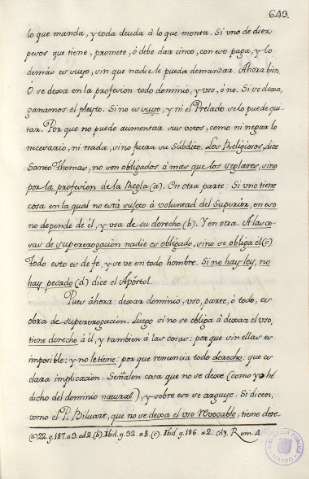 649.
lo que manda, y toda deuda á lo que monta. Si uno de diez
pesos que tiene, promete, ó debe dar cinco, con eso paga, y lo
demás es suyo, sin que nadie le pueda demandar. Ahora bien,
O se dexa en la profesion todo dominio, y uso, ó no. Si se dexa,
ganamos el pleyto. Si no es suyo, y ni el Prelado se lo puede qui-
tar. Por que no puedo aumentar sus votos, como ni negar lo
necesario, ni nadie, sino fuera su Subdito. Los Religiosos, dice
Santo Thomas, no son obligados á mas que los seglares, sino
por la profesion de la Regla (a). En otra parte. Si uno tiene
cosa en la qual no está sujeto á voluntad del Superior, en eso
no depende de él, y usa de su derecho (b). Y en otra. A las co-
sas de supererogacion nadie es obligado, sino se obliga él (c)
Todo esto es de fe, y se ve en todo hombre. Si no hay ley, no
hay pecado (d) dice el Apóstol.
Pues ahora: dexar dominio, uso, parte, ó todo, es
obra de supererogacion. Luego si no se obliga á dexar el uso,
tiene derecho á él, y tambien á las cosas: por que sin ellas es
imposible: y no le tiene: por que renuncia todo derecho: que es
clara implicacion. Señalen cosa que no se dexe (como ya hé
dicho del dominio natural), y sobre eso se arguye. Si dicen,
como el P. Biluart, que no se dexa el uso revocable, tiene dere-
(a) 22. q. 187. a 3. ad 2. (b) Ibid. q. 32. a 8. (c) Ibid. q. 186. a 2. (d) Rom. 4.